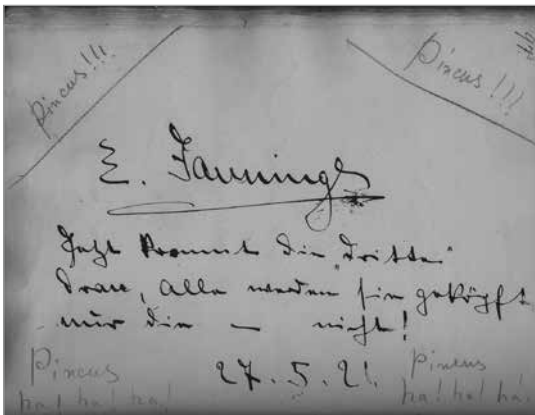 Pincus!!!
Pincus!!!
E. Jannings
Jetzt kommt die „Dritte“
dran, alle werden sie geköpft
nur die — nicht!
27.5.21.
Pincus
ha! ha! ha!
Pincus
ha! ha! ha!